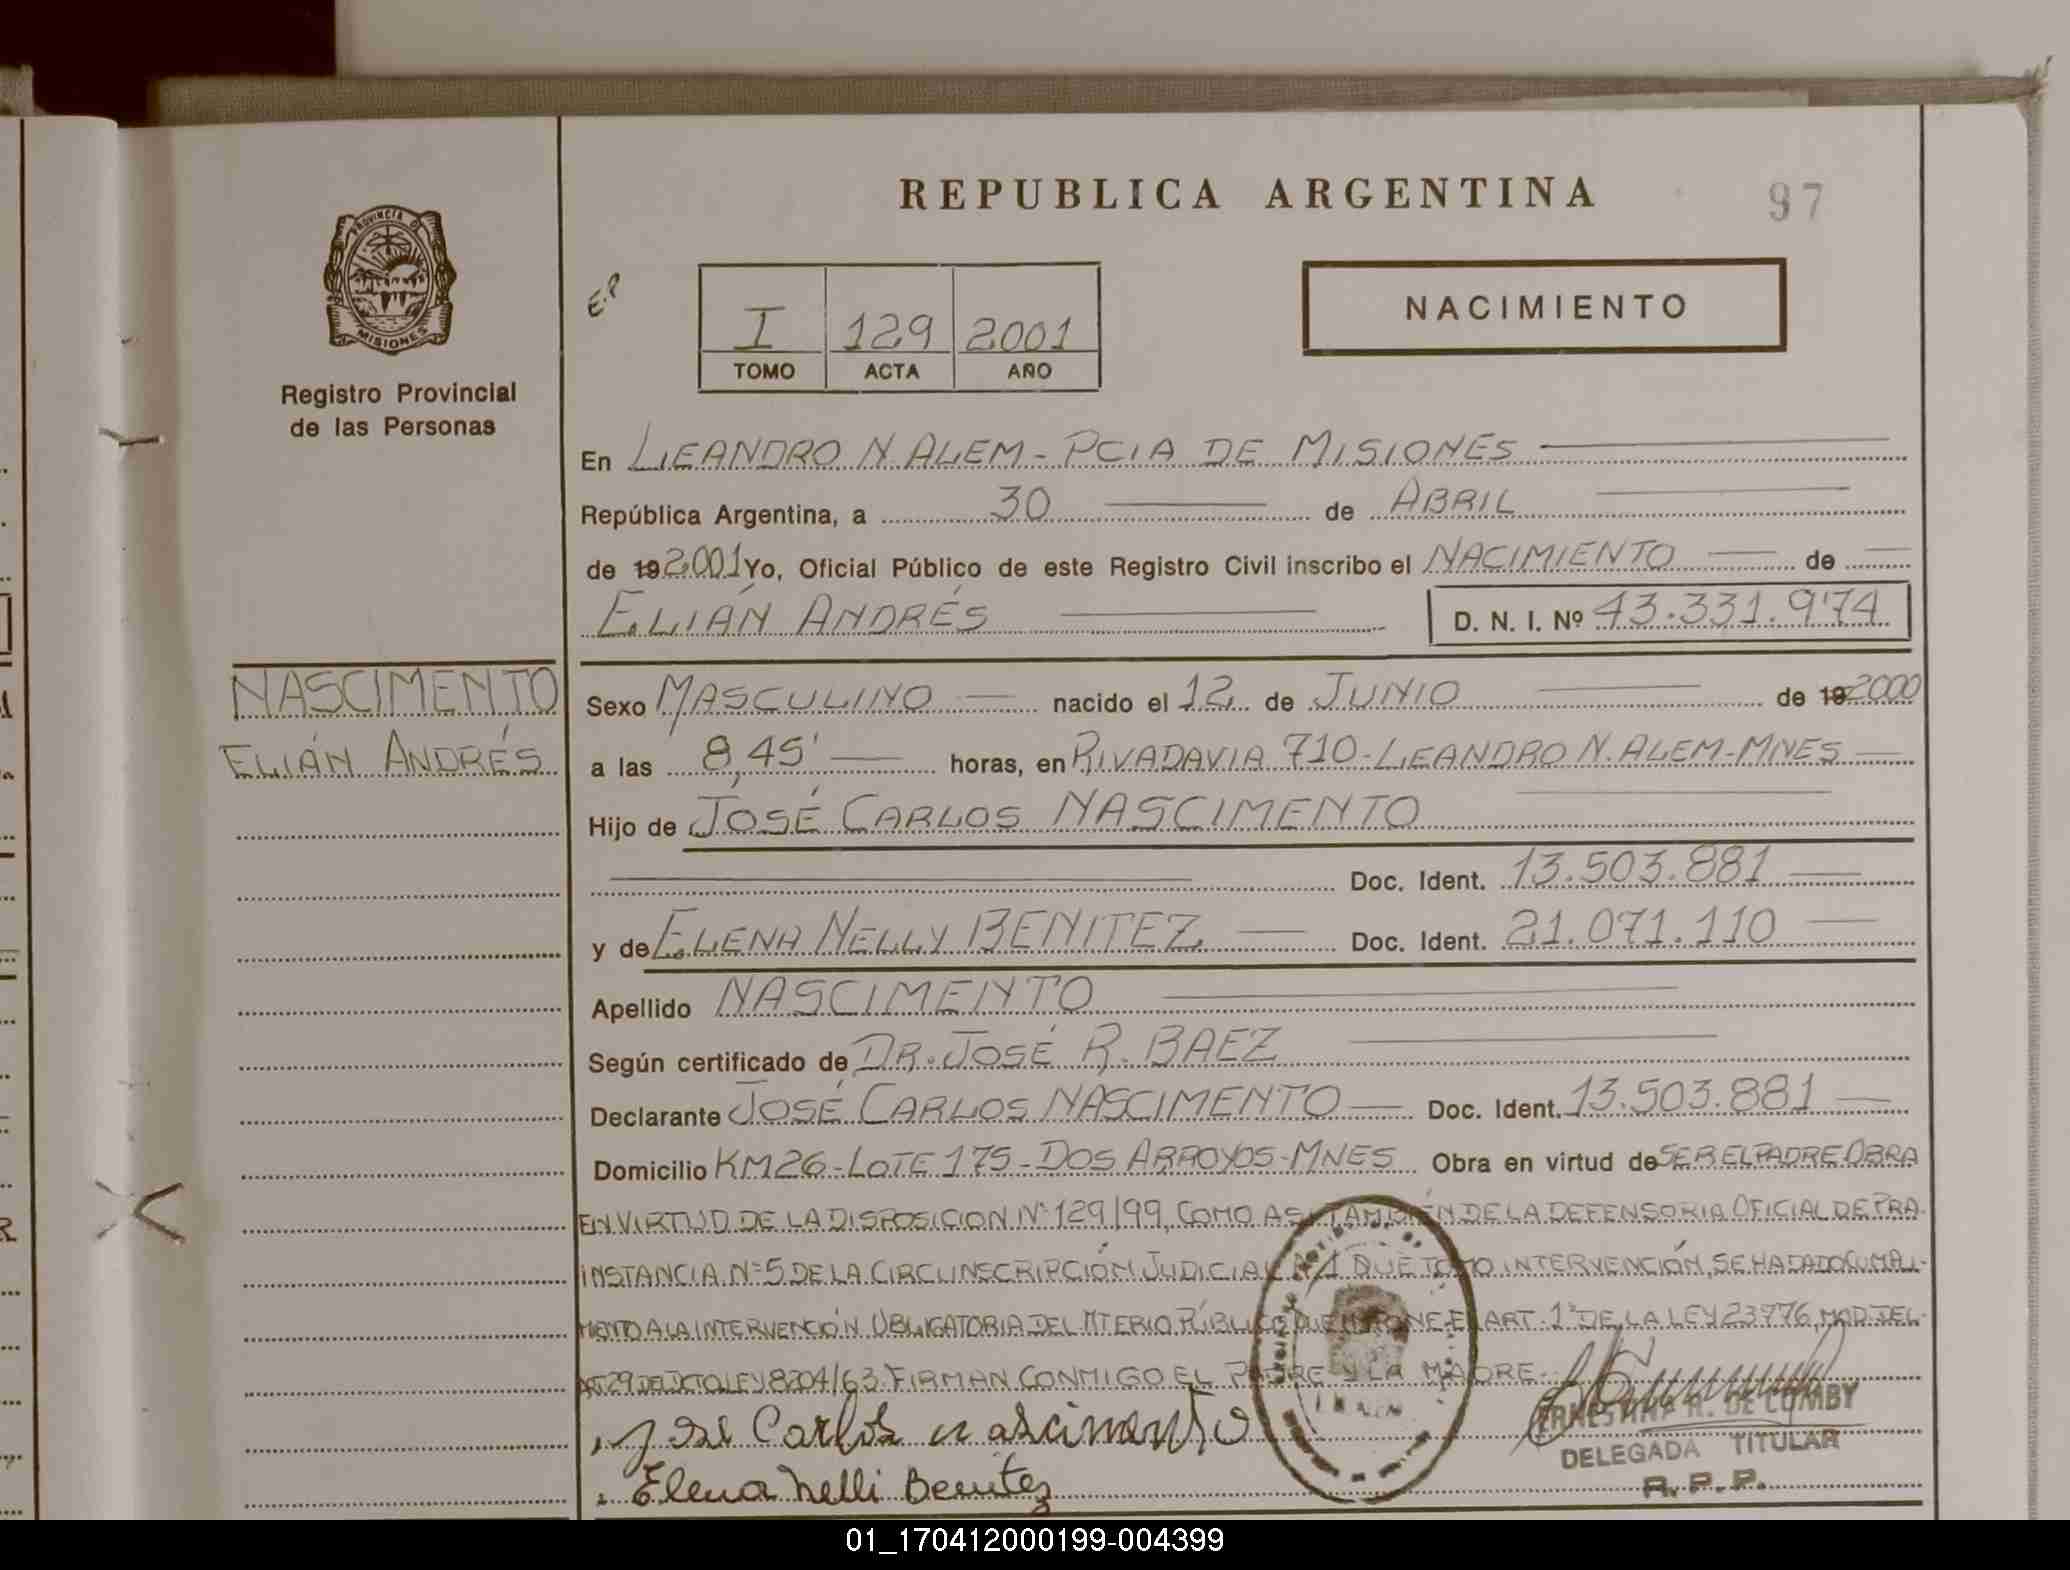 REPUBLICA ARGENTINA
97
PROVINCIA DE
MISIONES
Registro Provincial
de las Personas
E.P
I 129 2001
TOMO ACTA AÑO
NACIMIENTO
En LEANDRO N. ALEM - PCIA DE MISIONES
República Argentina, a 30 de ABRIL
de 19 2001 Yo, Oficial Público de este Registro Civil inscribo el NACIMIENTO de
ELIÁN ANDRÉS D. N. I. Nº 43.331.974
NASCIMENTO
ELIÁN ANDRÉS
Sexo MASCULINO nacido el 12 de JUNIO de 19 2000
a las 8,45' horas, en RIVADAVIA 710 - LEANDRO N. ALEM - MNES
Hijo de JOSÉ CARLOS NASCIMENTO
Doc. Ident. 13.503.881
y de ELENA NELLY BENITEZ Doc. Ident. 21.071.110
Apellido NASCIMENTO
Según certificado de DR. JOSÉ R. BAEZ
Declarante JOSÉ CARLOS NASCIMENTO Doc. Ident. 13.503.881
Domicilio KM 26 - LOTE 175 - DOS ARROYOS - MNES Obra en virtud de SER EL PADRE OBRA
EN VIRTUD DE LA DISPOSICION Nº 129/99, COMO ASI TAMBIÉN DE LA DEFENSORIA OFICIAL DE PRA.
INSTANCIA Nº 5 DE LA CIRCUNSCRIPCIÓN JUDICIAL QUE TOMO INTERVENCIÓN, SE HA DADO CUMPLI-
MIENTO A LA INTERVENCIÓN OBLIGATORIA DEL MTERIO PÚBLICO QUE IMPONE EL ART. 1º DE LA LEY 23776, MOD. DEL
ART 29 DEL DCTO LEY 8204/63. FIRMAN CONMIGO EL PADRE Y LA MADRE
José Carlos nascimento
Elena Nelli Benitez
ERNESTINA R. DE LUMBY
DELEGADA TITULAR
R. P. P.
01_170412000199-004399